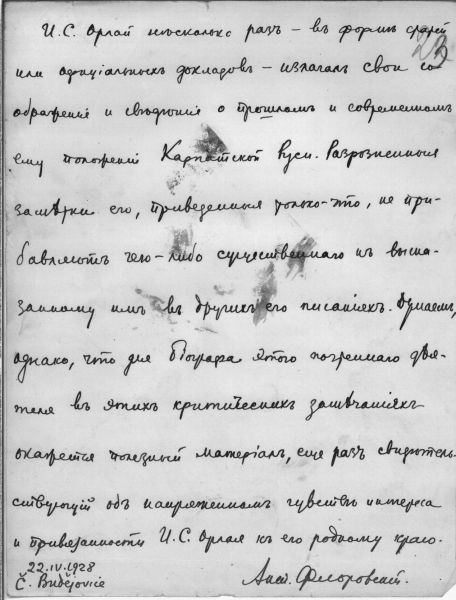 И. С. Орлай несколько разъ – въ формѣ статей
23
или офиціальныхъ докладовъ – излагалъ свои со-
ображенія и свѣдѣнія о прошломъ и современномъ
ему положеніи Карпатской Руси. Разрозненныя
замѣтки его, приведенныя только-что, не при-
бавляютъ чего-либо существеннаго къ выска-
занному имъ въ другихъ его писаніяхъ. Думаемъ,
однако, что для біографа этого почтеннаго дѣя-
теля въ этихъ критическихъ замѣчаніяхъ
окажется полезный матеріалъ, еще разъ свидѣтель-
ствующій объ напряженномъ чувствѣ интереса
и привязанности И. С. Орлая къ его родному краю.
22.IV.1928
Č. Budějovice
Ант. Флоровскій.